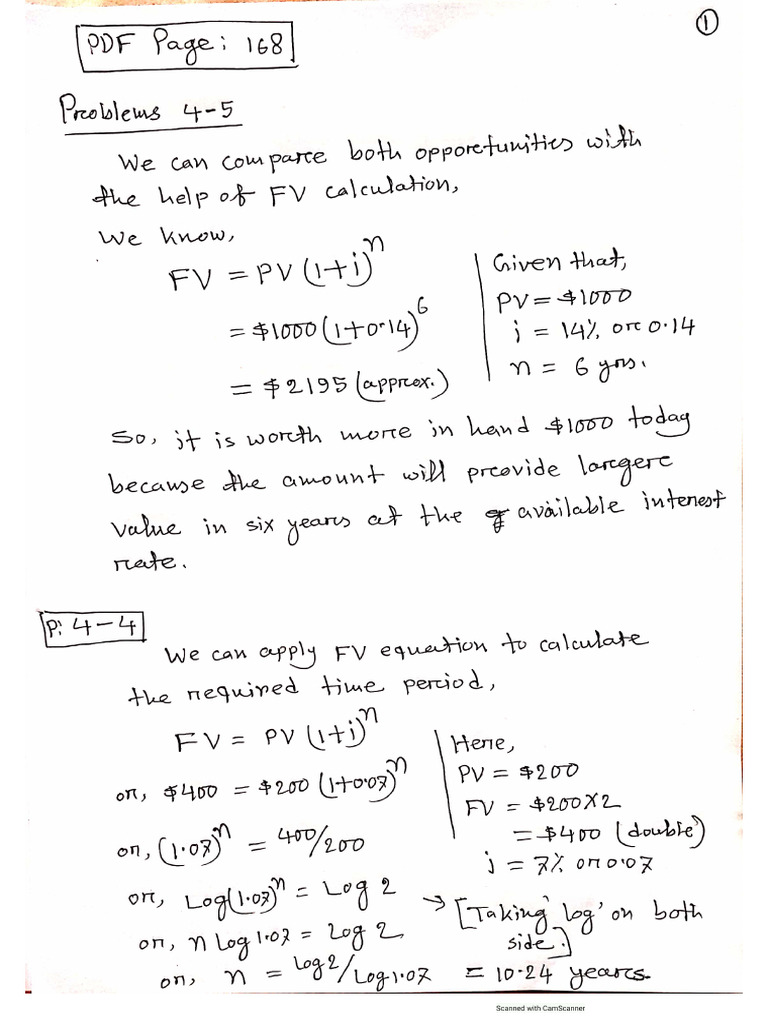 ①
PDF Page: 168
Problems 4-5
We can compare both opportunities with
the help of FV calculation,
We know,
FV = PV(1+i)^n
= $1000(1+0.14)^6
= $2195 (approx.)
Given that,
PV = $1000
i = 14% or 0.14
n = 6 yrs.
So, it is worth more in hand $1000 today
because the amount will provide larger
value in six years at the available interest
rate.
P: 4-4
We can apply FV equation to calculate
the required time period,
FV = PV (1+i)^n
or, $400 = $200 (1+0.07)^n
or, (1.07)^n = 400/200
or, Log(1.07)^n = Log 2
or, n Log 1.07 = Log 2
or, n = Log2/Log1.07 = 10.24 years.
Here,
PV = $200
FV = $200X2
= $400 (double)
i = 7% or 0.07
→ [Taking 'log' on both
side.]
Scanned with CamScanner